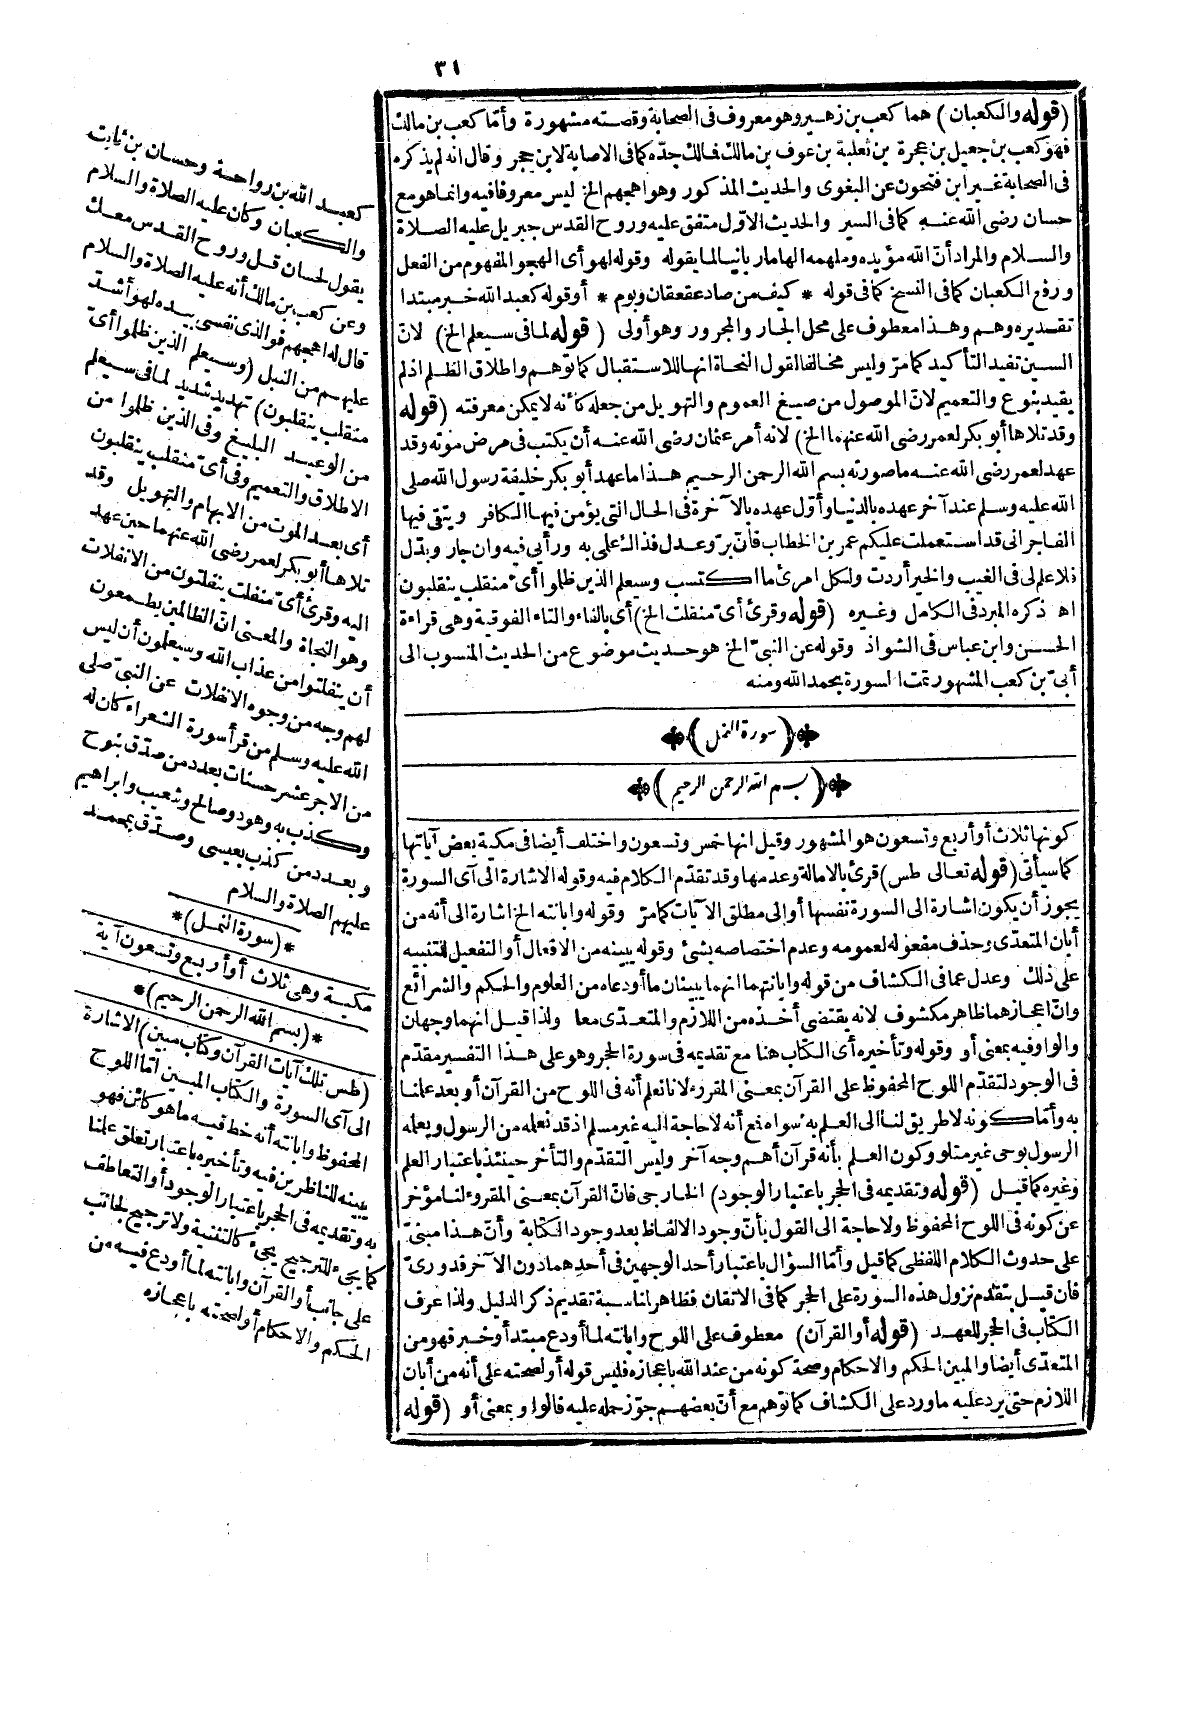 ٣١
(قوله والكعبان) هما كعب بن زهير وهو معروف فى الصحابة وقصته مشهورة وأما كعب بن مالك
فهو كعب بن جعيل بن عجرة بن ثعلبة بن عوف بن مالك فمالك جدّه كما فى الاصابة لابن حجر وقال انه لم يذكره
فى الصحابة غير ابن فتحون عن البغوى والحديث المذكور وهو اهجهم الخ ليس معروفا فيه وانما هو مع
حسان رضى الله عنه كما فى السير والحديث الاوّل متفق عليه وروح القدس جبريل عليه الصلاة
والسلام والمراد أنّ الله مؤيده وملهمه الهاما ربانيا لما يقوله وقوله لهو أى الهجو المفهوم من الفعل
ورفع الكعبان كما فى النسخ كما فى قوله * كيف من صاد عقعقان وبوم * أو قوله كعبد الله خبر مبتدا
تقديره وهم وهذا معطوف على محل الجار والمجرور وهو أولى (قوله لما فى سيعلم الخ) لانّ
السين تفيد التأكيد كما مرّ وليس مخالفا لقول النحاة انها للاستقبال كما توهم واطلاق الظلم اذ لم
يقيد بنوع والتعميم لانّ الموصول من صيغ العموم والتهويل من جعله كأنه لا يمكن معرفته (قوله
وقد تلاها أبو بكر لعمر رضى الله عنهما الخ) لانه أمر عثمان رضى الله عنه أن يكتب فى مرض موته وقد
عهد لعمر رضى الله عنه ما صورته بسم الله الرحمن الرحيم هذا ما عهد أبو بكر خليفة رسول الله صلى
الله عليه وسلم عند آخر عهده بالدنيا وأوّل عهده بالآخرة فى الحال التى يؤمن فيها الكافر ويتقى فيها
الفاجر انى قد استعملت عليكم عمر بن الخطاب فان برّ وعدل فذاك على به ورأيى فيه وان جار وبدّل
فلا علم لى فى الغيب والخير أردت ولكل امرئ ما اكتسب وسيعلم الذين ظلموا أىّ منقلب ينقلبون
اه ذكره المبرد فى الكامل وغيره (قوله وقرئ أىّ منفلت الخ) أى بالفاء والتاء الفوقية وهى قراءة
الحسن وابن عباس فى الشواذ وقوله عن النبىّ الخ هو حديث موضوع من الحديث المنسوب الى
أبىّ بن كعب المشهور تمت السورة بحمد الله ومنه
(سورة النمل)
(بسم الله الرحمن الرحيم)
كونها ثلاث أو أربع وتسعون هو المشهور وقيل انها خمس وتسعون واختلف أيضا فى مكية بعض آياتها
كما سيأتى (قوله تعالى طس) قرئ بالامالة وعدمها وقد تقدّم الكلام فيه وقوله الاشارة الى آى السورة
يجوز أن يكون اشارة الى السورة نفسها أو الى مطلق الآيات كما مرّ وقوله وابانته الخ اشارة الى أنه من
أبان المتعدّى وحذف مفعوله لعمومه وعدم اختصاصه بشئ وقوله يبينه من الافعال أو التفعيل للتنبيه
على ذلك وعدل عما فى الكشاف من قوله وابانتهما انهما يبينان ما أودعاه من العلوم والحكم والشرائع
وانّ اعجازهما ظاهر مكشوف لانه يقتضى أخذه من اللازم والمتعدّى معا ولذا قيل انهما وجهان
والواو فيه بمعنى أو وقوله وتأخيره أى الكتاب هنا مع تقديمه فى سورة الحجر وهو على هذا التفسير مقدّم
فى الوجود لتقدّم اللوح المحفوظ على القرآن بمعنى المقروء لانا نعلم أنه فى اللوح من القرآن أو بعد علمنا
به وأمّا كونه لا طريق لنا الى العلم به سواه مع أنه لا حاجة اليه غير مسلم اذ قد نعلمه من الرسول ويعلمه
الرسول بوحى غير متلو وكون العلم بأنه قرآن أهم وجه آخر وليس التقدّم والتأخر حينئذ باعتبار العلم
وغيره كما قيل (قوله وتقديمه فى الحجر باعتبار الوجود) الخارجى فانّ القرآن بمعنى المقروء لنا مؤخر
عن كونه فى اللوح المحفوظ ولا حاجة الى القول بأنّ وجود الالفاظ بعد وجود الكتابة وأنّ هذا مبنىّ
على حدوث الكلام اللفظى كما قيل وأمّا السؤال باعتبار أحد الوجهين فى أحدهما دون الآخر فدورىّ
فان قيل بتقدّم نزول هذه السورة على الحجر كما فى الاتقان فظاهر لمناسبة تقديم ذكر الدليل ولذا عرف
الكتاب فى الحجر للعهد (قوله أو القرآن) معطوف على اللوح وابانته لما أودع مبتدأ وخبر فهو من
المتعدّى أيضا والمبين الحكم والاحكام وصحة كونه من عند الله باعجازه فليس قوله أو لصحته على أنه من أبان
اللازم حتى يرد عليه ما ورد على الكشاف كما توهم مع أنّ بعضهم جوّز حمله عليه فالواو بمعنى أو (قوله
كعبد الله بن رواحة وحسان بن ثابت
والكعبان وكان عليه الصلاة والسلام
يقول لحسان قل وروح القدس معك
وعن كعب بن مالك أنه عليه الصلاة والسلام
قال له اهجهم فوالذى نفسى بيده لهو أشد
عليهم من النبل (وسيعلم الذين ظلموا أىّ
منقلب ينقلبون) تهديد شديد لما فى سيعلم
من الوعيد البليغ وفى الذين ظلموا من
الاطلاق والتعميم وفى أىّ منقلب ينقلبون
أى بعد الموت من الايهام والتهويل وقد
تلاها أبو بكر لعمر رضى الله عنهما حين عهد
اليه وقرئ أىّ منفلت ينفلتون من الانفلات
وهو النجاة والمعنى انّ الظالمين يطمعون
أن ينفلتوا من عذاب الله وسيعلمون أن ليس
لهم وجه من وجوه الانفلات عن النبىّ صلى
الله عليه وسلم من قرأ سورة الشعراء كان له
من الاجر عشر حسنات بعدد من صدّق بنوح
وكذب به وهود وصالح وشعيب وابراهيم
وبعدد من كذب بعيسى وصدّق بمحمد
عليهم الصلاة والسلام
*(سورة النمل)*
مكية وهى ثلاث أو أربع وتسعون آية
*(بسم الله الرحمن الرحيم)*
(طس تلك آيات القرآن وكتاب مبين) الاشارة
الى آى السورة والكتاب المبين امّا اللوح
المحفوظ وابانته أنه خط فيه ما هو كائن فهو
يبينه للناظرين فيه وتأخيره باعتبار تعلق علمنا
به وتقديمه فى الحجر باعتبار الوجود أو التعاطف
كما يجىء للترجيح يجىء كالتثنية ولا ترجيح لجانب
على جانب أو القرآن وابانته لما أودع فيه من
الحكم والاحكام أو لصحته باعجازه